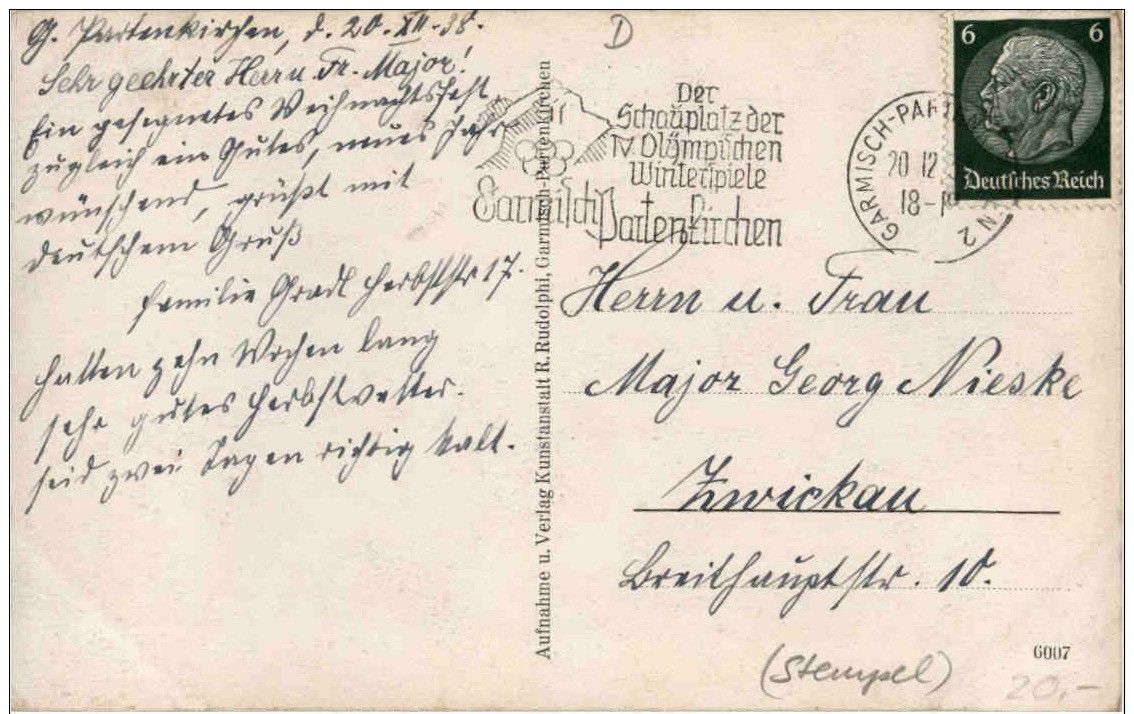 G. Partenkirchen, d. 20. XII. 38.
Sehr geehrter Herrn Fr. Major!
Ein gesegnetes Weihnachtsfest,
zugleich ein Gutes, neues Jahr
wünschend, grüßt mit
deutschem Gruß
Familie Gradl Herbststr 17.
Hatten zehn Wochen lang
sehr gutes Herbstwetter.
seid zwei Tagen richtig kalt.
Aufnahme u. Verlag Kunstanstalt R. Rudolphi, Garmisch-Partenkirchen
D
Der
Schauplatz der
IV. Olympischen
Winterspiele
Garmisch Partenkirchen
GARMISCH-PART
20 12
18-19
N 2
6 6
Deutsches Reich
Herrn u. Frau
Major Georg Nieske
Zwickau
Breithauptstr. 10.
6007
(Stempel)
20.-